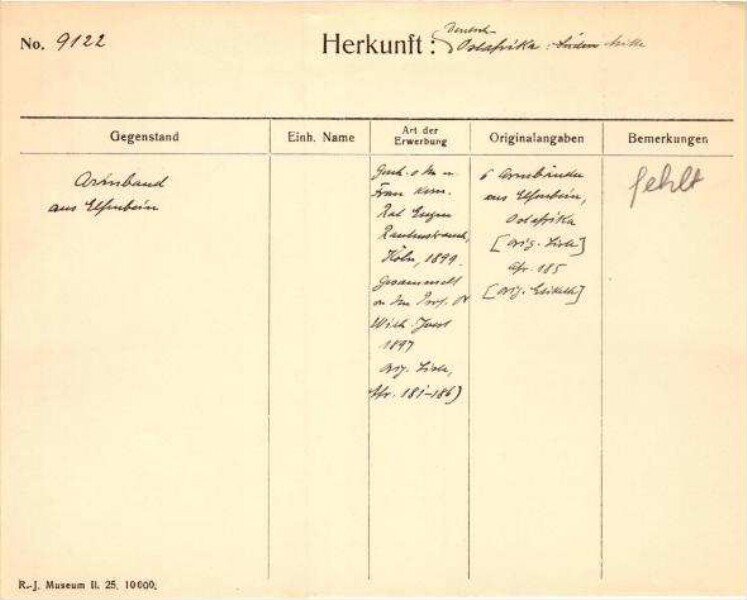 No. 9122
Herkunft: Deutsch-
Ostafrika:
Gegenstand
Einh. Name
Art der
Erwerbung
Originalangaben
Bemerkungen
Armband
aus Elfenbein
Gesch.
Frau Kom.
Rat Eugen
Rautenstrauch,
Köln, 1899.
Gesammelt
Prof. Dr
Wilh. Joest
1897
Orig. Liste,
Afr. 181-186)
6 Armbänder
aus Elfenbein,
Ostafrika
[Orig. Liste]
Afr. 185
[Orig. Etikett]
fehlt
R.-J. Museum II. 25. 10000.